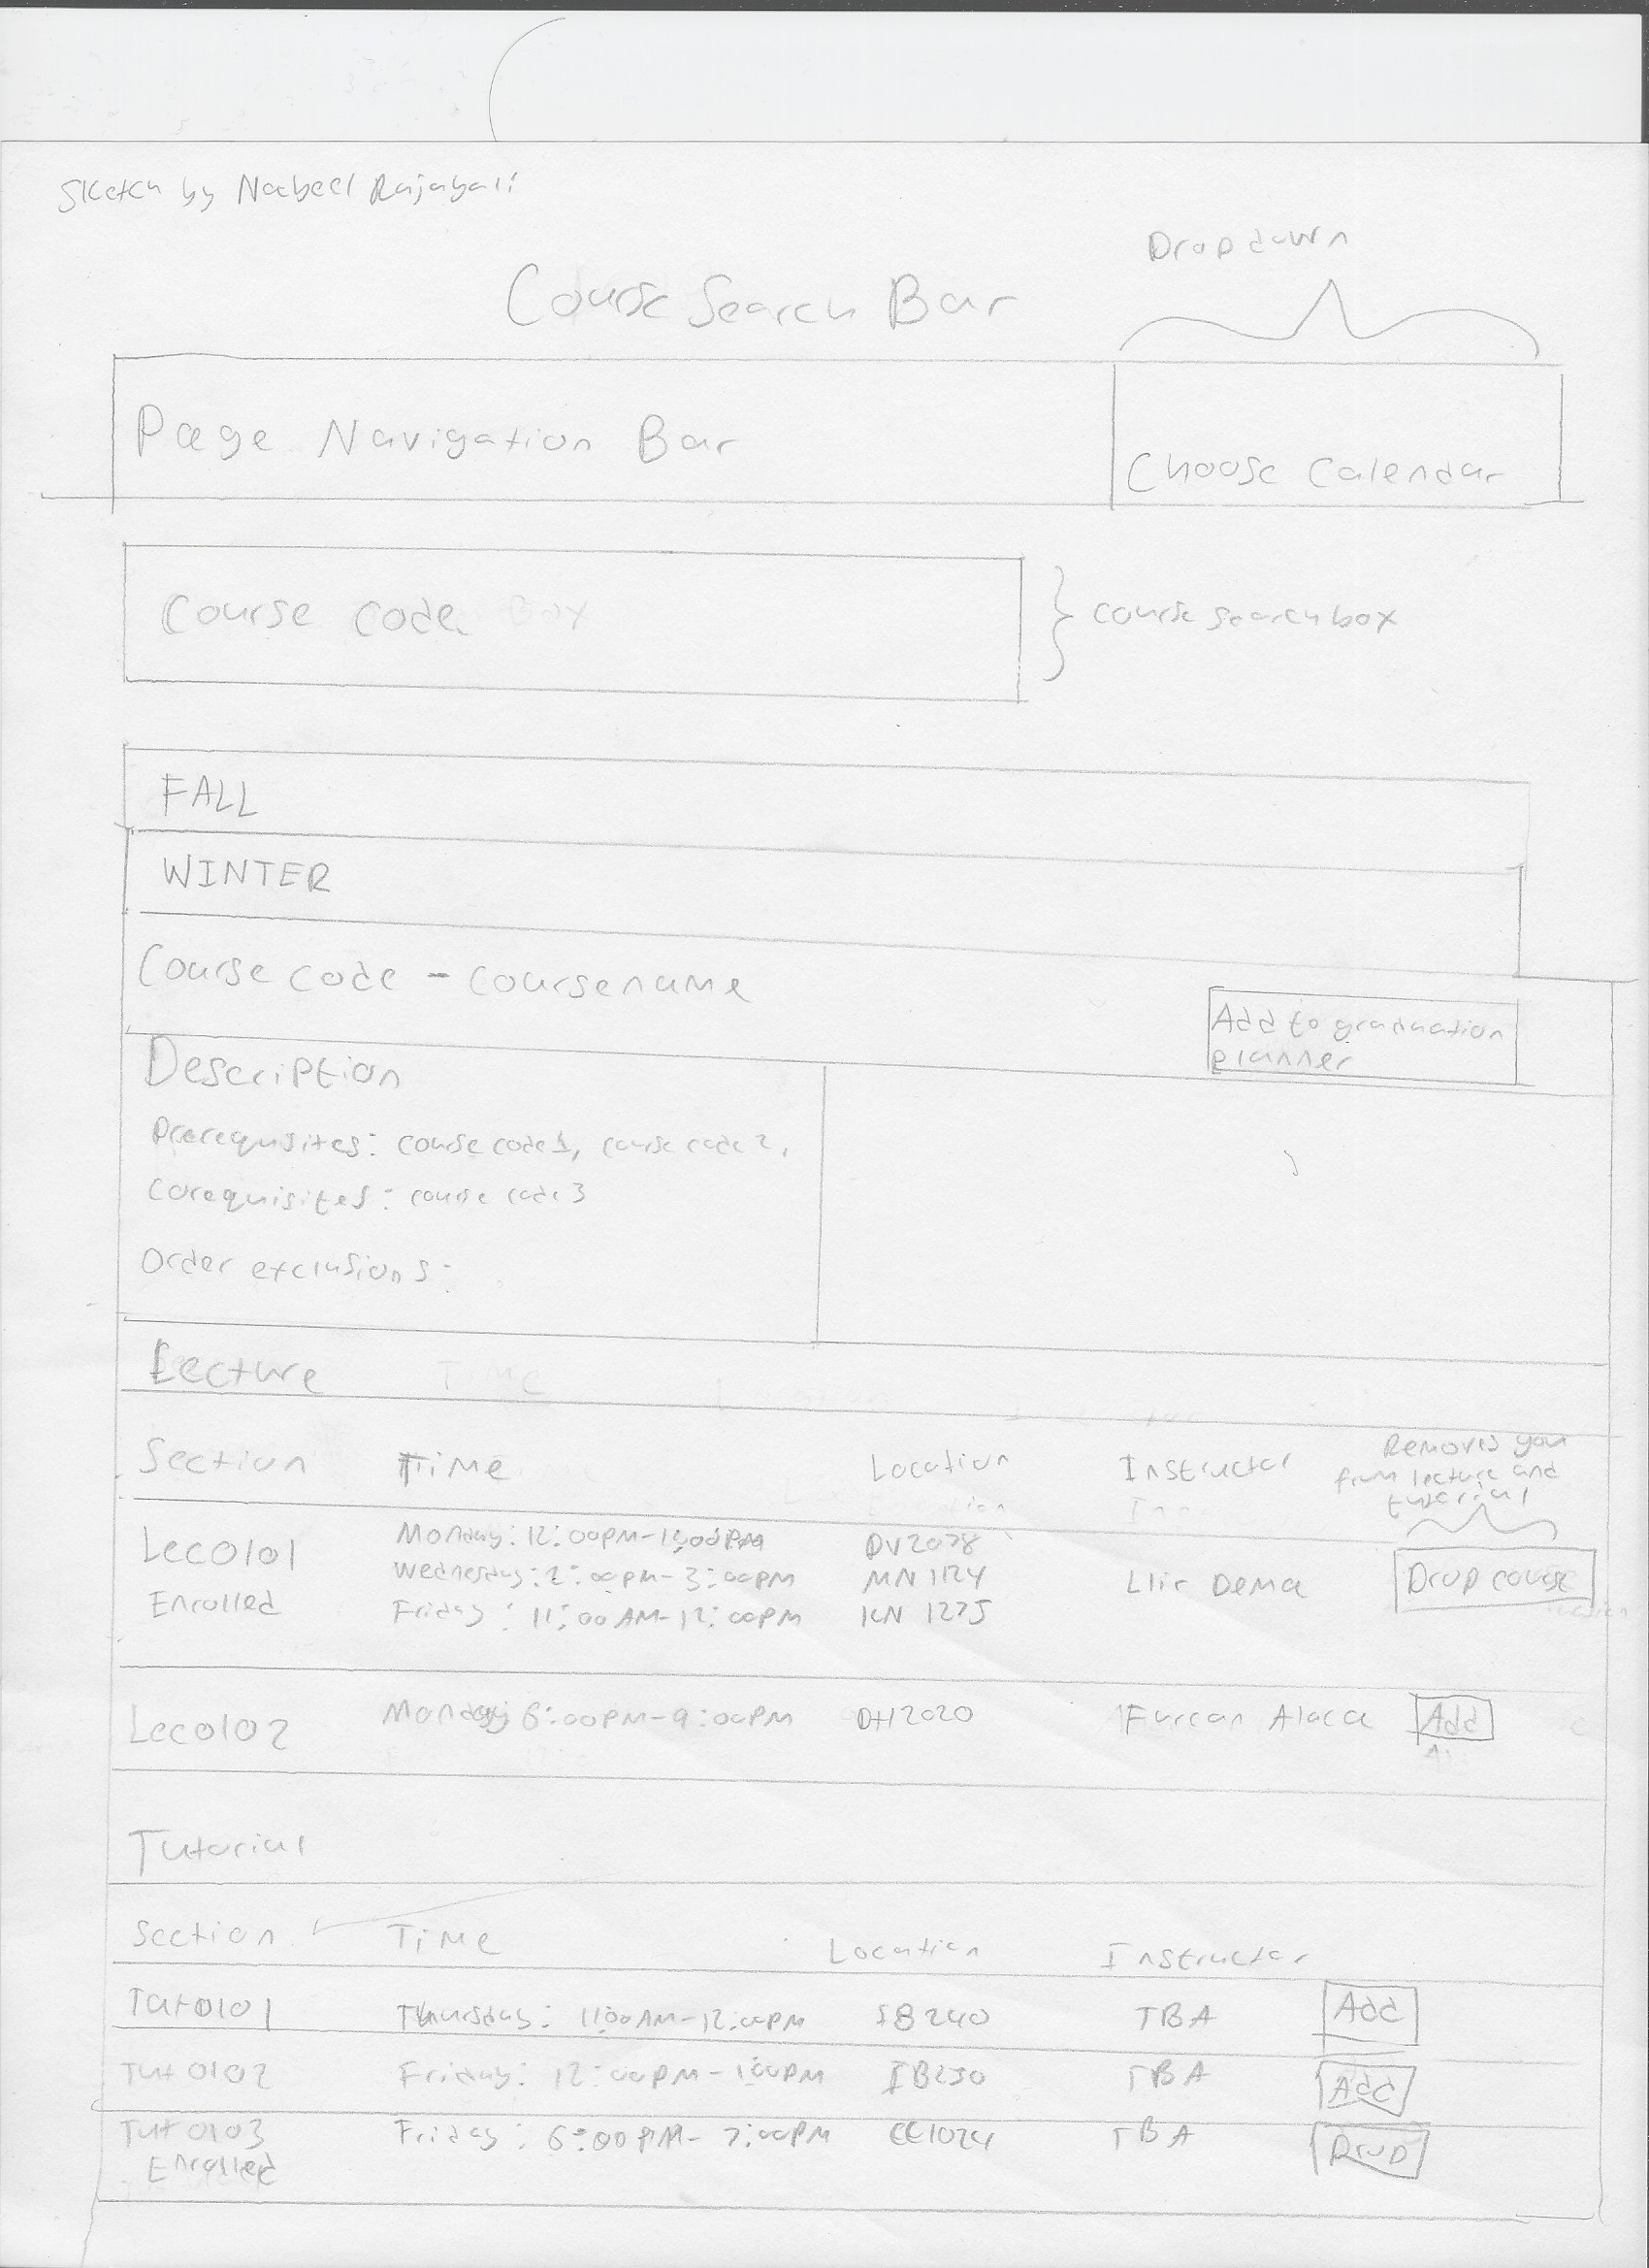 Sketch by Nabeel Rajabali
Dropdown
Course Search Bar
Page Navigation Bar
Choose Calendar
Course code Box
course search box
FALL
WINTER
Course code - course name
Add to graduation
planner
Description
Prerequisites: course code 1, course code 2,
Corequisites: course code 3
Order exclusions:
Lecture Time
Section Time Location Instructor
Removes you
from lecture and
tutorial
Lec0101 Monday: 12:00PM-1:00PM DV2078
Wednesday: 2:00PM-3:00PM MN 1124 Llir Dema Drop course
Enrolled Friday: 11:00AM-12:00PM KN 1275
Lec0102 Monday 6:00PM-9:00PM DH2020 Furcan Alaca Add
Tutorial
Section Time Location Instructor
Tut0101 Thursday: 11:00AM-12:00PM IB240 TBA Add
Tut0102 Friday: 12:00PM-1:00PM IB250 TBA Add
Tut0103 Friday: 6:00PM-7:00PM CC1024 TBA Drop
Enrolled